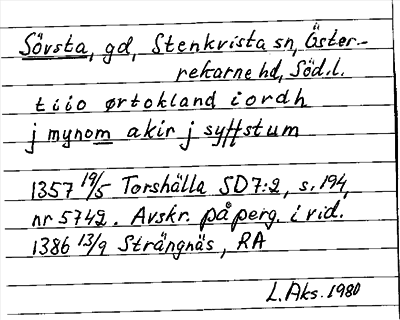 Sövsta, gd, Stenkvista sn, Öster-
rekarne hd, Söd.l.
tiio ørtokland i ordh
j mynom akir j syffstum
1357 19/5 Torshälla SD7:2, s. 194,
nr 5742. Avskr. på perg. i vid.
1386 13/9 Strängnäs, RA
L. Aks. 1980